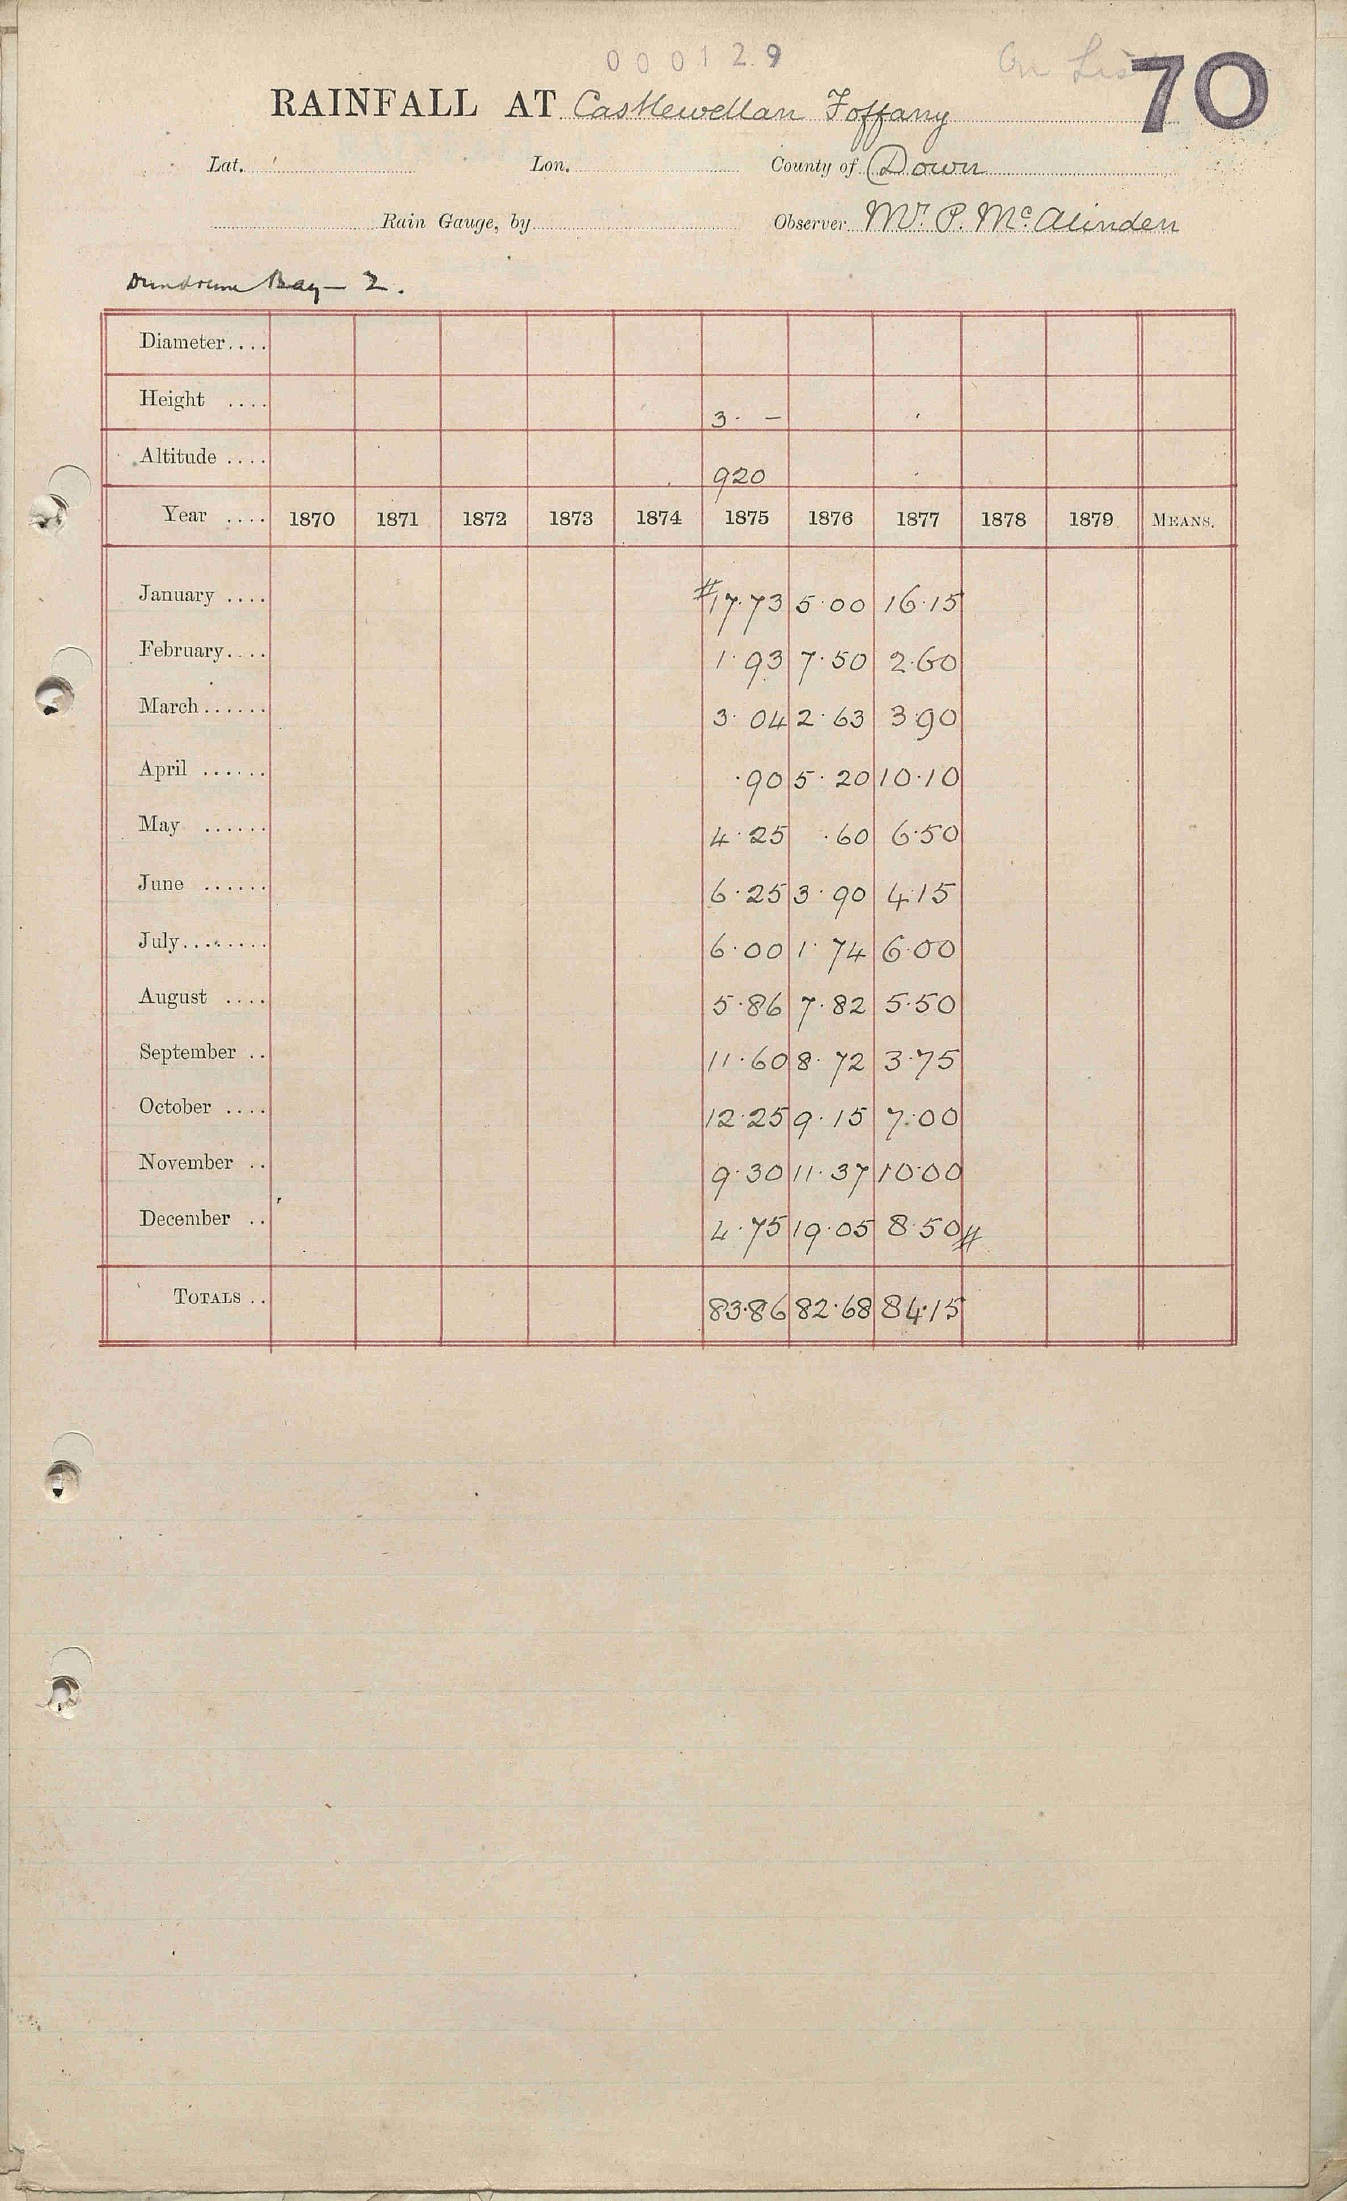 000129
On List
70
RAINFALL AT Castlewellan Foffany
Lat. Lon. County of Down
Rain Gauge, by Observer Mr. P. McAlinden
Dundrum Bay - 2.
Diameter....
Height .... 3. -
Altitude .... 920
Year .... 1870 1871 1872 1873 1874 1875 1876 1877 1878 1879 MEANS.
January .... #17.73 5.00 16.15
February.... 1.93 7.50 2.60
March...... 3.04 2.63 3.90
April ...... .90 5.20 10.10
May ...... 4.25 .60 6.50
June ...... 6.25 3.90 4.15
July........ 6.00 1.74 6.00
August .... 5.86 7.82 5.50
September .. 11.60 8.72 3.75
October .... 12.25 9.15 7.00
November .. 9.30 11.37 10.00
December .. 4.75 19.05 8.50#
TOTALS .. 83.86 82.68 84.15